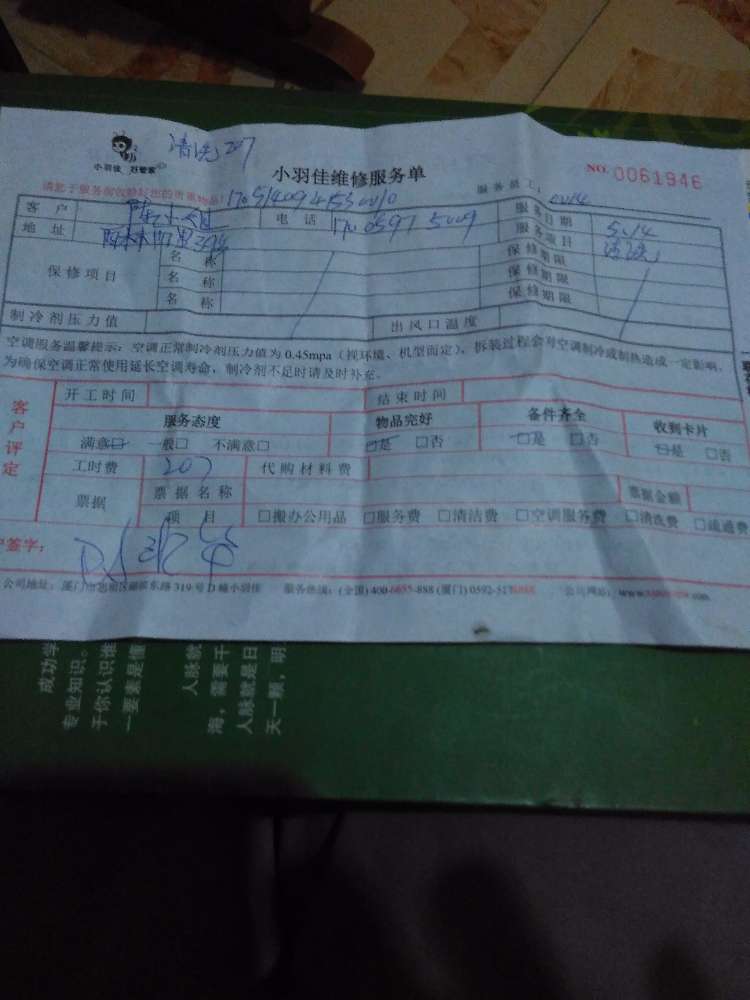 清洗 207
小羽佳 好管家
小羽佳维修服务单
NO. 0061946
服务员工:
客户 电话 服务日期 5.14
地址 服务项目 清洗
保修项目 名称 保修期限
名称 保修期限
名称 保修期限
制冷剂压力值 出风口温度
空调服务温馨提示:空调正常制冷剂压力值为 0.45mpa(视环境、机型而定),拆装过程会对空调制冷或制热造成一定影响。
为确保空调正常使用延长空调寿命,制冷剂不足时请及时补充。
客户评定
开工时间 结束时间
服务态度 物品完好 备件齐全 收到卡片
满意□ 一般□ 不满意□ □是 □否 □是 □否 □是 □否
工时费 207 代购材料费
票据 票据名称 票据金额
项目 □搬办公用品 □服务费 □清洁费 □空调服务费 □清洗费 □流通费
签字:
公司地址:厦门市思明区湖滨东路 319 号 D 幢小羽佳 服务热线:(全国) 400-6655-888 (厦门) 0592-51 公司网站: www. .com
成功学
专业知识。
于你认识谁
一要素是懂
人脉就
海,需要千
人脉就是日
天一颗,明